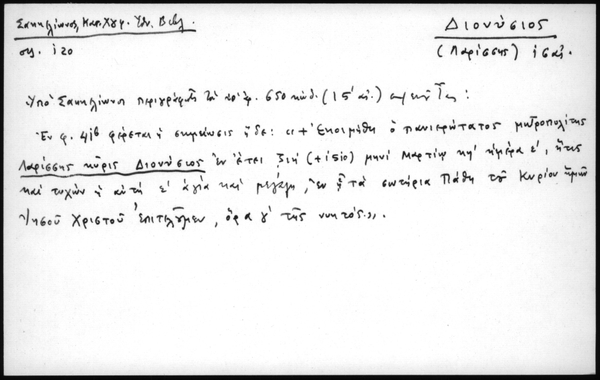 Σακκελίωνος, Κατ. Χφ. Ἐθν. Βιβλ.
σελ. 120
Διονύσιος
(Λαρίσσης) ις αἰ.
Ὑπὸ Σακκελίωνος περιγράφεται ὑπ' ἀρ. 650 κώδ. (15' αἰ.)
Ἐν φ. φέρεται ἡ σημείωσις ἥδε: « + Ἐκοιμήθη ὁ πανιερώτατος μητροπολίτης
Λαρίσσης κῦρις Διονύσιος ἐν ἔτει ζιη (+ 1510) μηνὶ Μαρτίῳ κη' ἡμέρα ε', ἥτις
καὶ τυχὼν ἡ αὐτὴ ε' ἁγία καὶ μεγάλη, ἐν ᾗ τὰ σωτήρια Πάθη τοῦ Κυρίου ἡμῶν
Ἰησοῦ Χριστοῦ ἐπιτελοῦμεν, ὅρα γ' τῆς νυκτός».